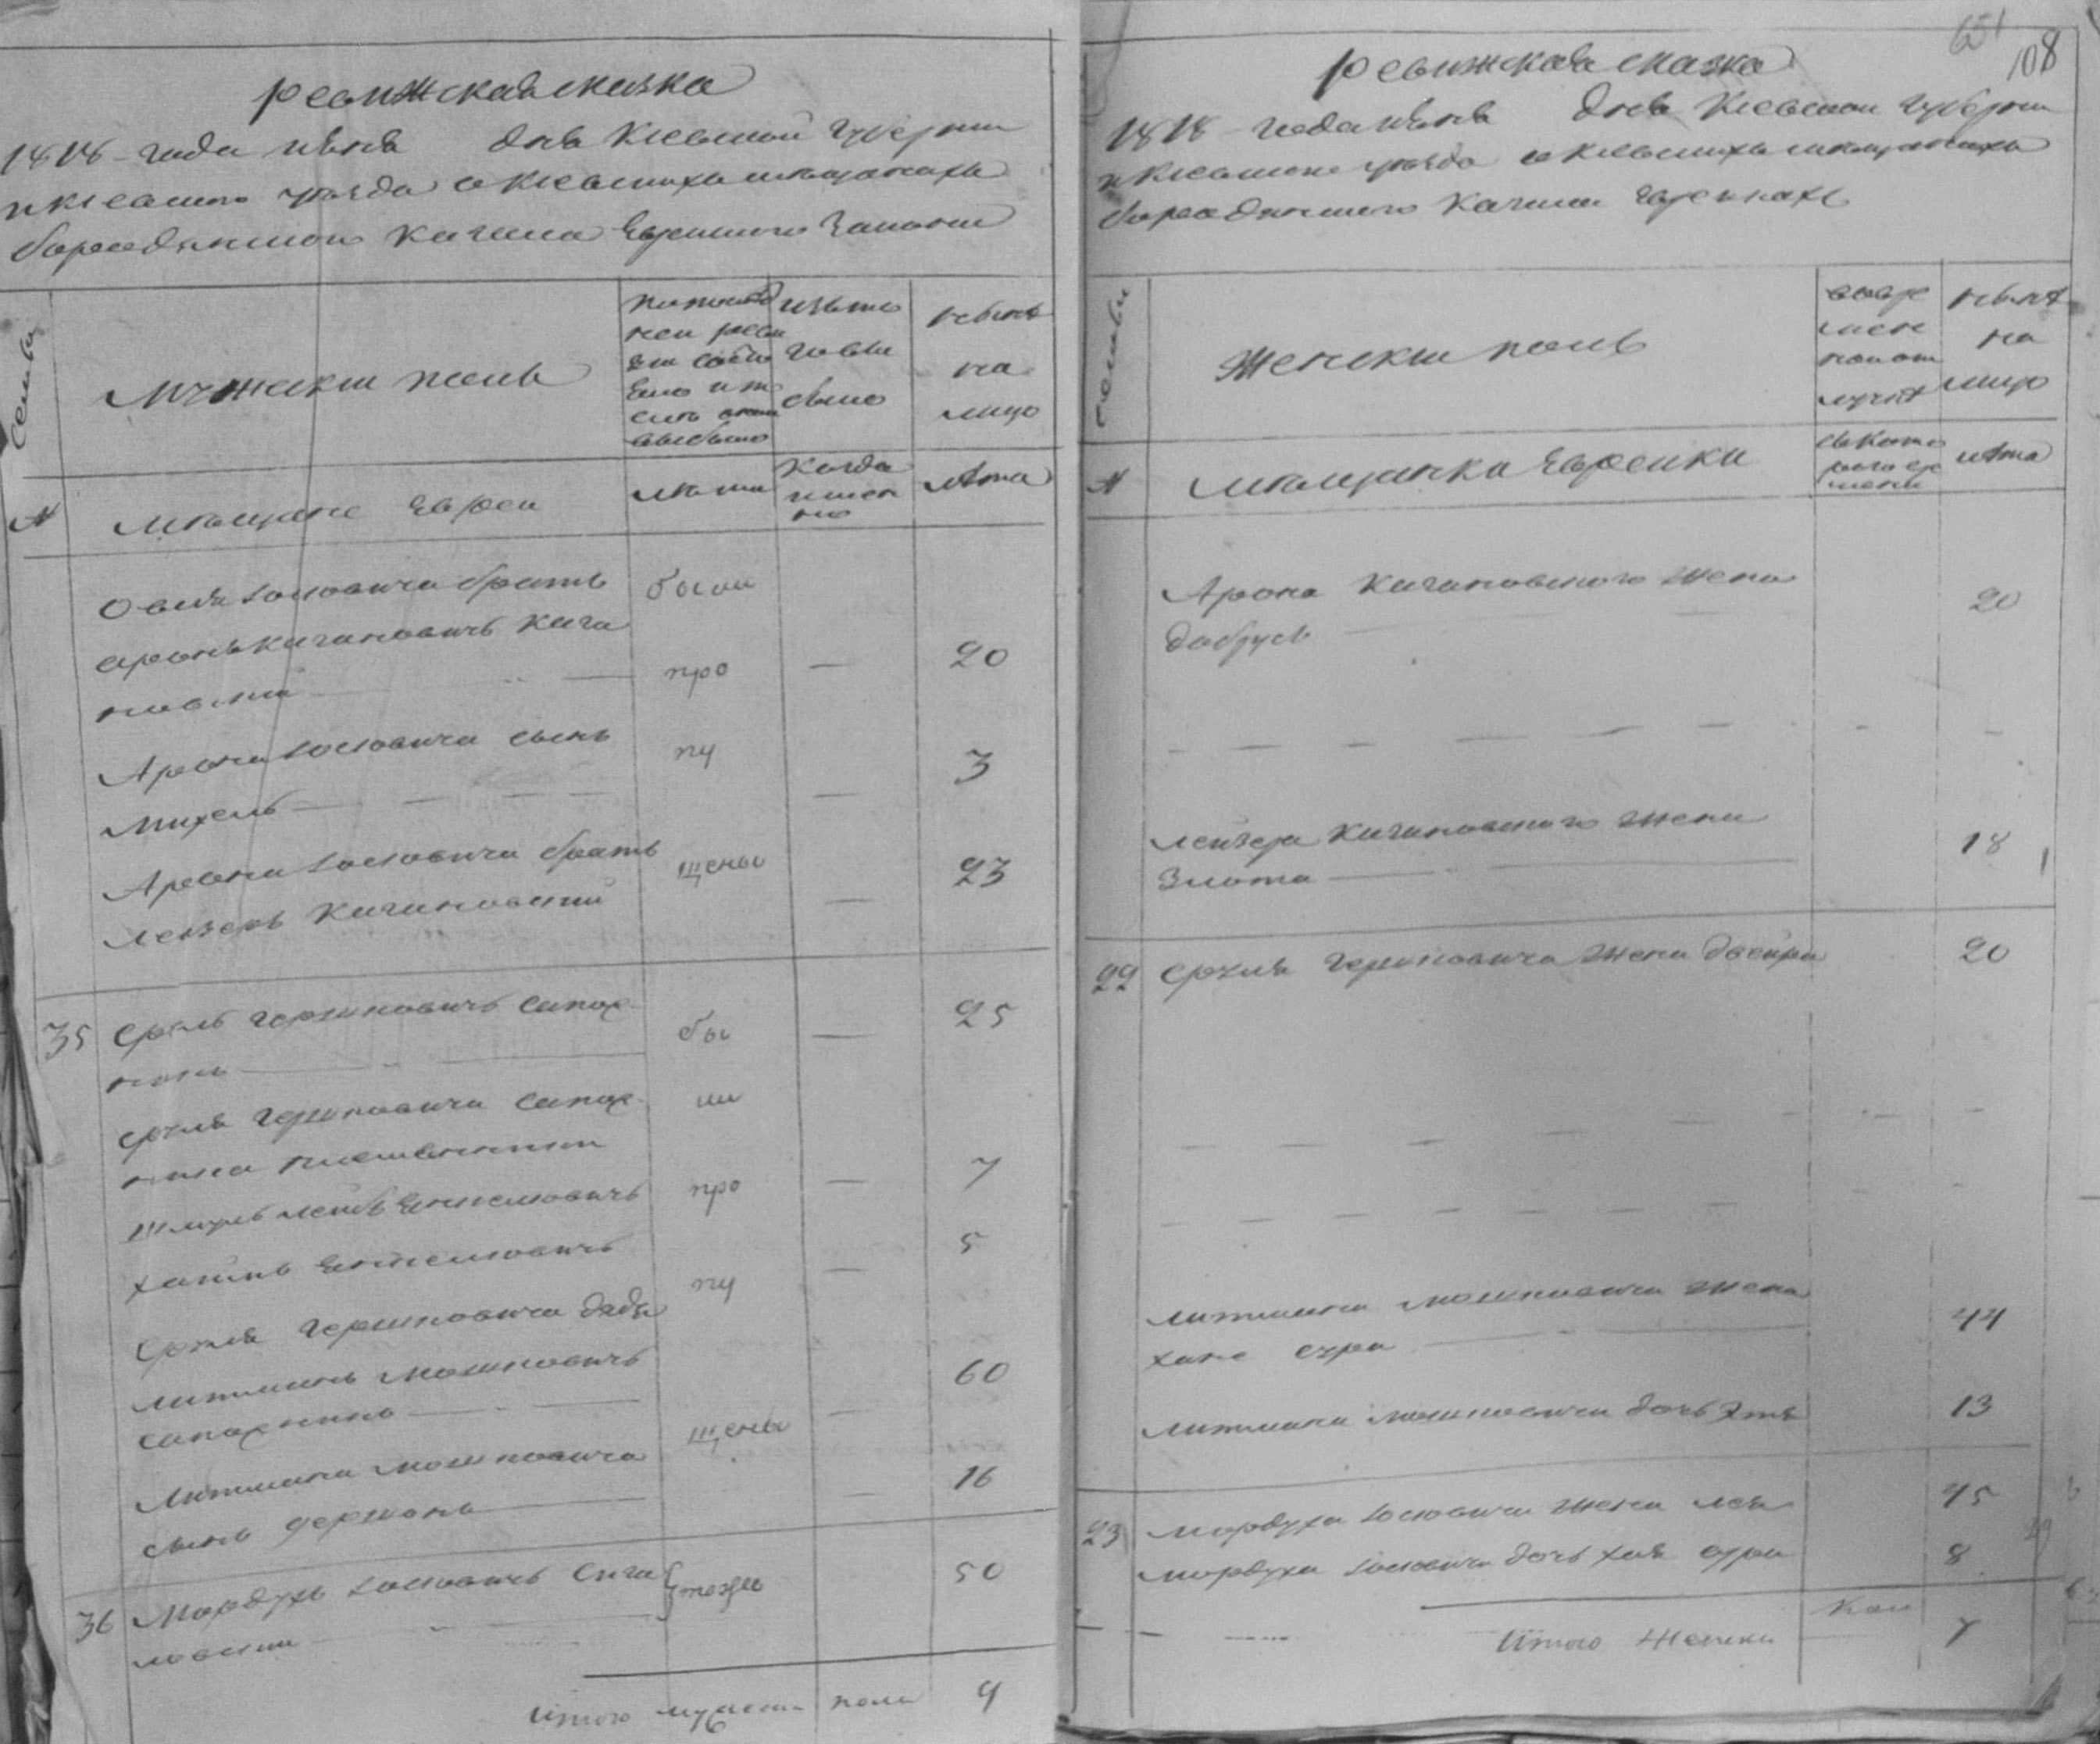 Ревижская сказка
1818 года июня дня Киевской Губернии
и Киевского уезда о Киевских мещанах
Бородянского Кагала Еврейского Закона
Семьи
Мужеский полъ
по послед
ней реви
зіи состо
яло и по
сле оной
выбыло
изъ того
числа
нынѣ
на
лицо
№
Мещане Евреи
лета
когда
имен
но
лѣта
Овсея Иосіовича братъ
Аронъ Кигановичъ Кига
новскій
20
Арона Иосіовича сынъ
Михель
3
Арона Иосіовича братъ
Лейзеръ Кигановскій
23
были
про
пу
щены
35
Сруль Гершковичъ Сапож
никъ
25
Сруля Гершковича Сапож
ника племянники
Шмуль Лейбъ Янкелиовичъ
7
Хаимъ Янкелиовичъ
5
Сруля Гершковича дядя
Литманъ Мошковичъ
Сапожникъ
60
Литмана Мошковича
сынъ Гершонъ
16
бы
ли
про
пу
щены
36
Мордухъ Иосіовичъ Сига
ловскій
тожъ
50
Итого мужеска пола
9
651
108
Ревижская сказка
1818 года июня дня Киевской Губернии
и Киевского уезда о Киевских мещанахъ
Бородянского Кагала Евреяхъ
Семьи
Женский полъ
во вре
мен
ной от
лучкѣ
нынѣ
на
лицо
№
Мещанки Еврейки
съ кото
рого вре
мени
лѣта
Арона Кигановского жена
Добрусь
20
Лейзера Кигановского жена
Злота
18
22
Сруля Гершковича жена Двейра
20
Литмана Мошковича жена
Хане Сура
44
Литмана Мошковича дочь Этя
13
23
Мордуха Иосіовича жена Лея
45
Мордуха Иосіовича дочь Хая Сура
8
Итого Женска Пола
7